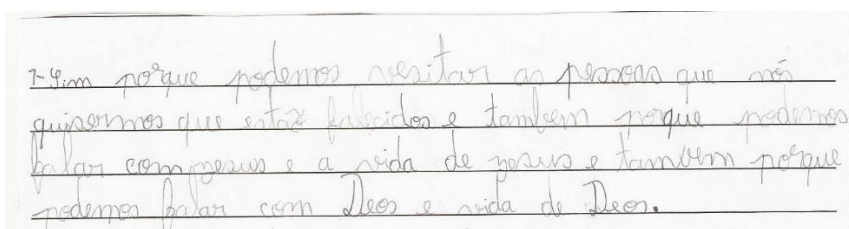 1-Sim porque podemos vesitar as pessoas que nós
quisermos que estão falecidos e tambem porque podemos
falar com jesus e a vida de jesus e tambem porque
podemos falar com Deos e vida de Deos.